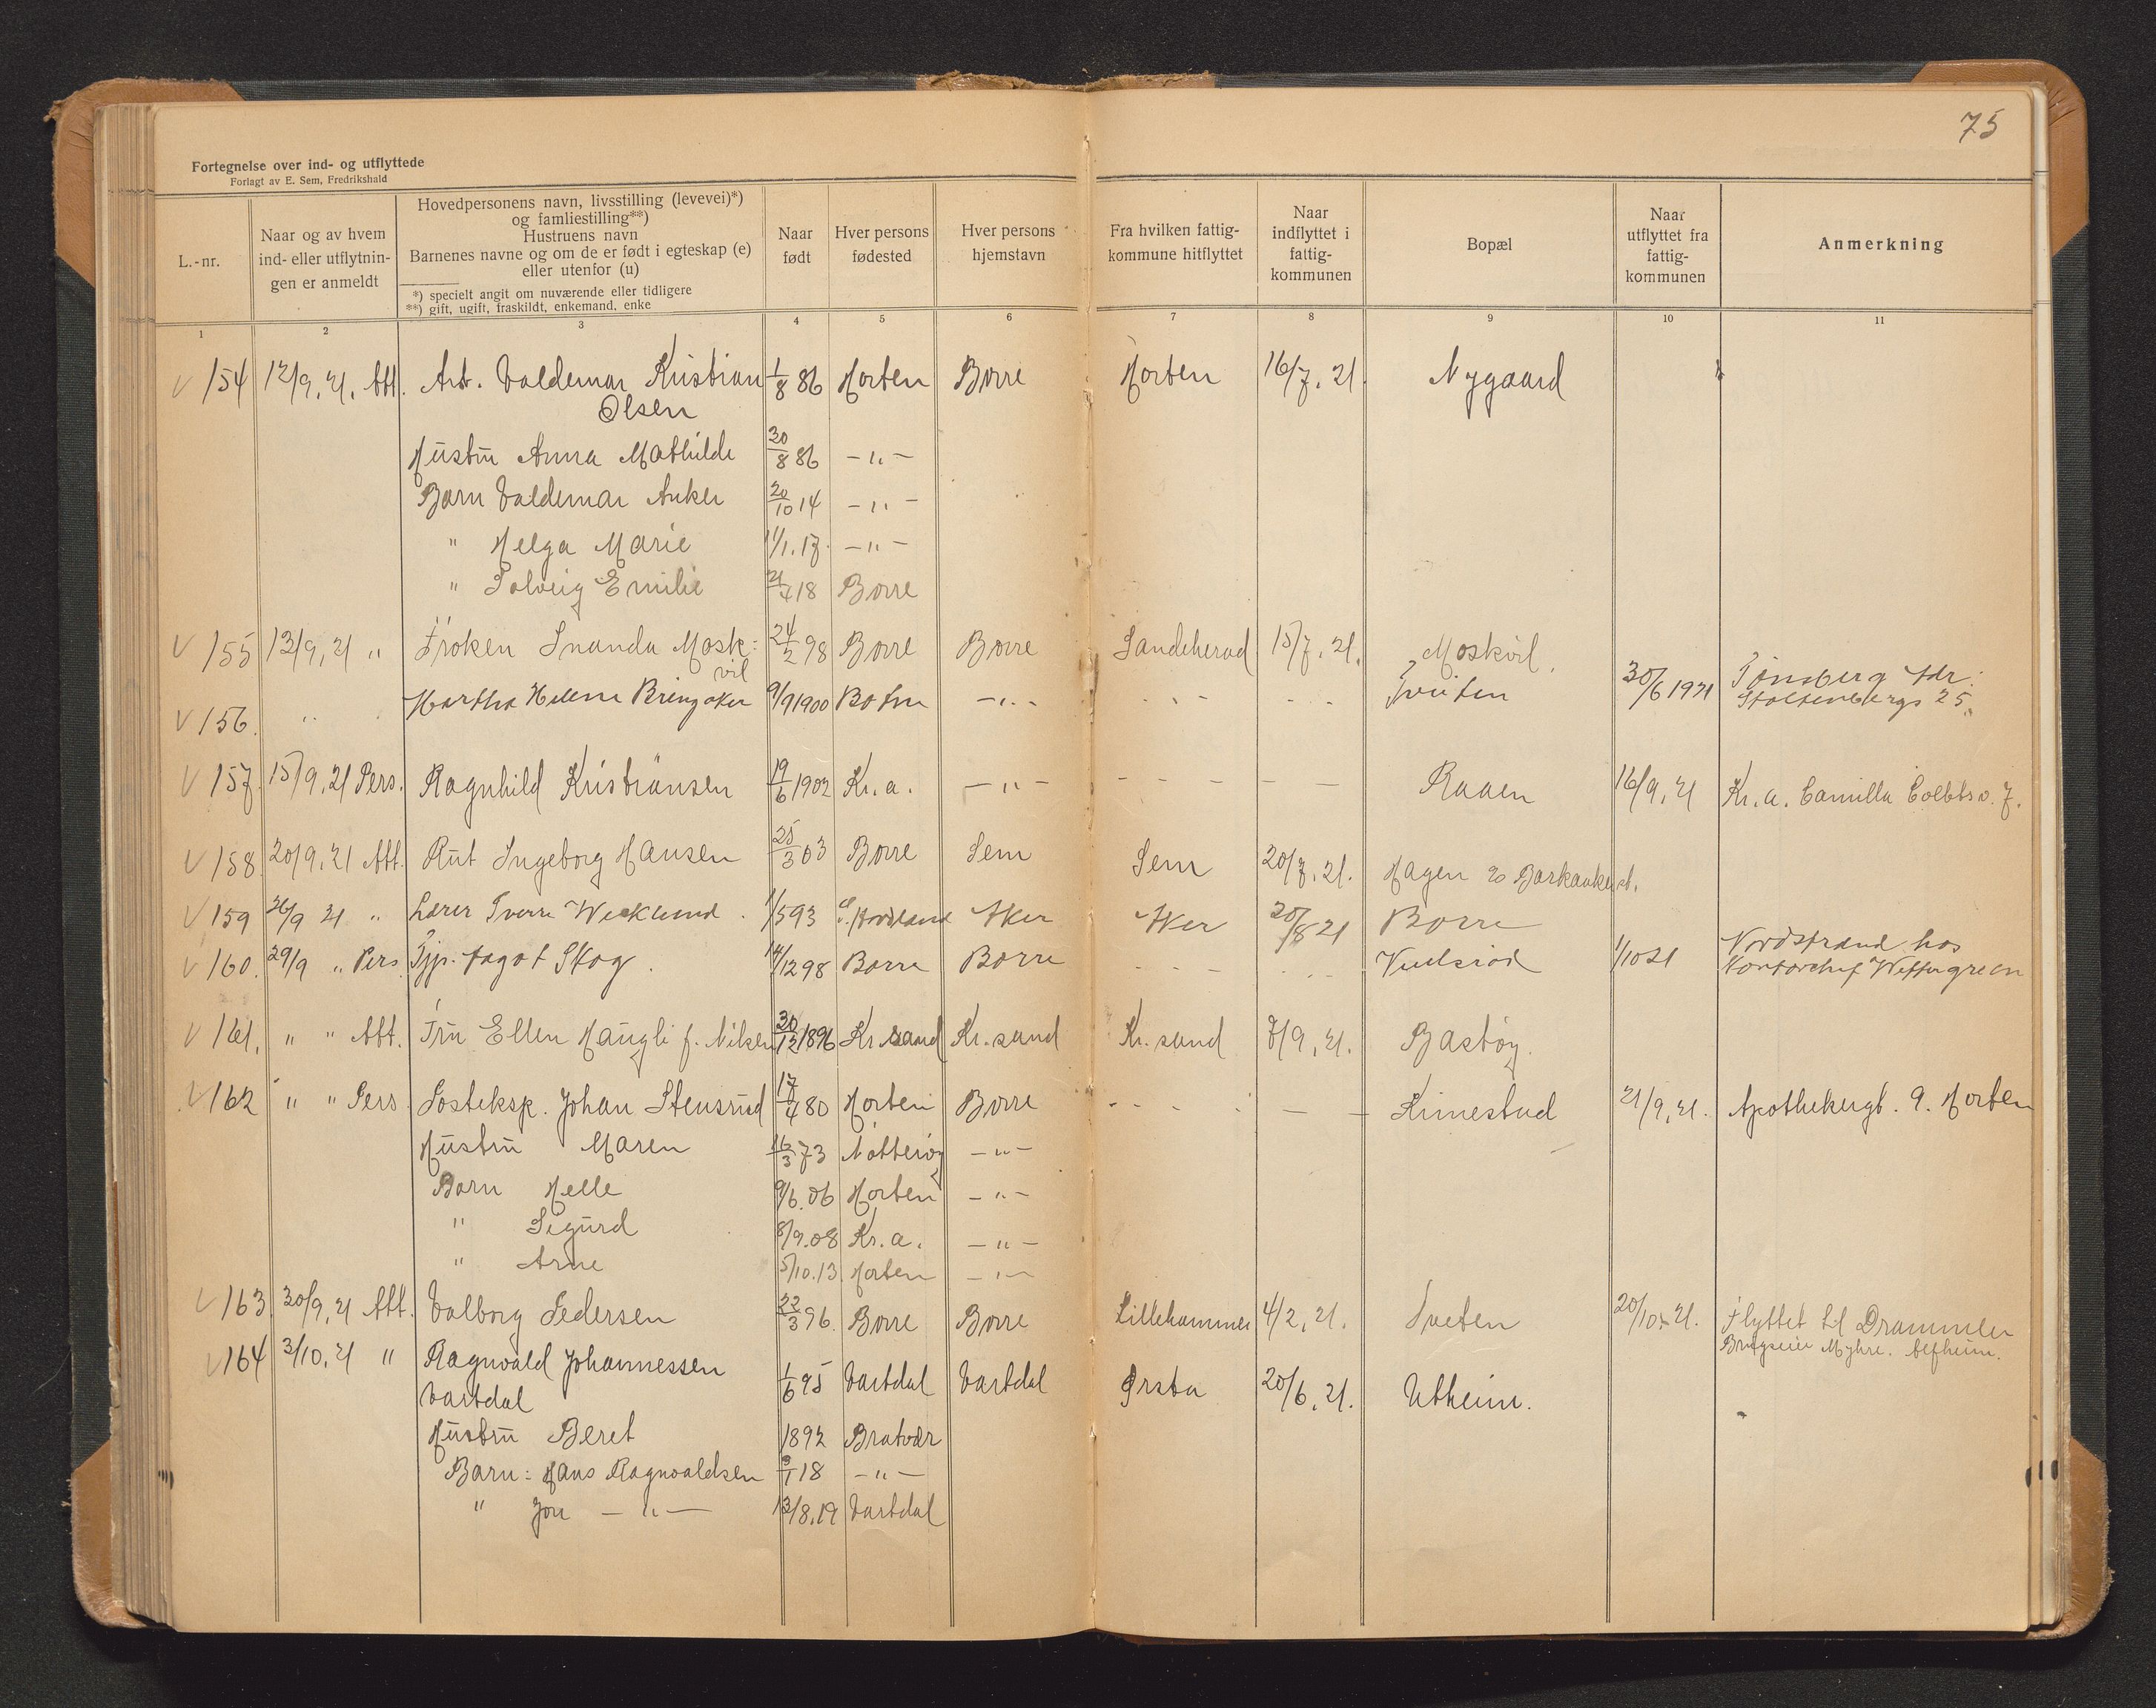 75
Fortegnelse over ind- og utflyttede
Forlagt av E. Sem, Fredrikshald
L.-nr.
Naar og av hvem
ind- eller utflytnin-
gen er anmeldt
Hovedpersonens navn, livsstilling (levevei)*)
og famliestilling**)
Hustruens navn
Barnenes navne og om de er født i egteskap (e)
eller utenfor (u)
*) specielt angit om nuværende eller tidligere
**) gift, ugift, fraskildt, enkemand, enke
Naar
født
Hver persons
fødested
Hver persons
hjemstavn
Fra hvilken fattig-
kommune hitflyttet
Naar
indflyttet i
fattig-
kommunen
Bopæl
Naar
utflyttet fra
fattig-
kommunen
Anmerkning
1 2 3 4 5 6 7 8 9 10 11
√ 154 12/9. 21. Att. Arb. Valdemar Kristian 1/8 86 Horten Borre Horten 16/7. 21. Nygaard
Olsen
Hustru Anna Mathilde 30/8 86 -"-
Barn Valdemar Anker 20/10 14 -"-
" Helga Marie 11/1. 17. -"-
" Solveig Emilie 21/4 18 Borre
√ 155 12/9, 21 " Frøken Inanda Mosk= 24/2 98 Borre Borre Sandeherad 15/7. 21. Moskvil.
vil
√ 156. " Martha Helene Bringaker 9/9 1900 Botne -"- - - - - Tveiten 30/6 1921 Tønsberg Adr:
Stoltenbergs 25.
√ 157. 15/9. 21 Pers. Ragnhild Kristiansen 19/6 1902 Kr. a. -"- - - - - - Raaen 16/9. 21 Kr. a. Camilla Collets v. 7.
√ 158 20/9. 21 Att. Rut Ingeborg Hansen 25/3 03 Borre Sem Sem 20/7. 21. Hagen Barkaaker st.
√ 159 26/9 21 " Lærer Sverre Wecklund. 1/5 93 Aker Aker 20/8 21 Borre
√ 160. 29/9 " Pers. Tjp. Aagot Skog. 14/12 98 Borre Borre - - - - - - Viulsrød 1/10 21 Nordstrand hos
Kontorchef Wettergreen
√ 161. " " Att. Fru Ellen Haugli f. Nilsen 30/12 1896 Kr. sand Kr. sand Kr. sand 7/9. 21. Bastøy.
√ 162 " " Pers. Posteksp. Johan Stensrud 17/4 80 Horten Borre - - - - - - Kimestad 21/9. 21. Apothekergt. 9. Horten
Hustru Maren 16/3 73 Nøtterøy -"-
Barn Helle 9/6. 06 Horten -"-
" Sigurd 8/9. 08 Kr. a. -"-
" Arne 5/10. 13 Horten -"-
√ 163. 30/9. 21 Att. Valborg Pedersen 22/3 96. Borre Borre Lillehammer 4/2. 21. Sveten 20/10. 21. Flyttet til Drammen
Brugseier Myhre. Alfheim.
√ 164 3/10. 21 " Ragnvald Johannessen 1/6 95 Vartdal Vartdal Ørsta 20/6. 21. Utheim.
Vartdal
Hustru Beret 1892 Bratvær
Barn: Hans Ragnvaldsen 3/1 18 -"-
" Jon -"- 13/8. 19 Vartdal